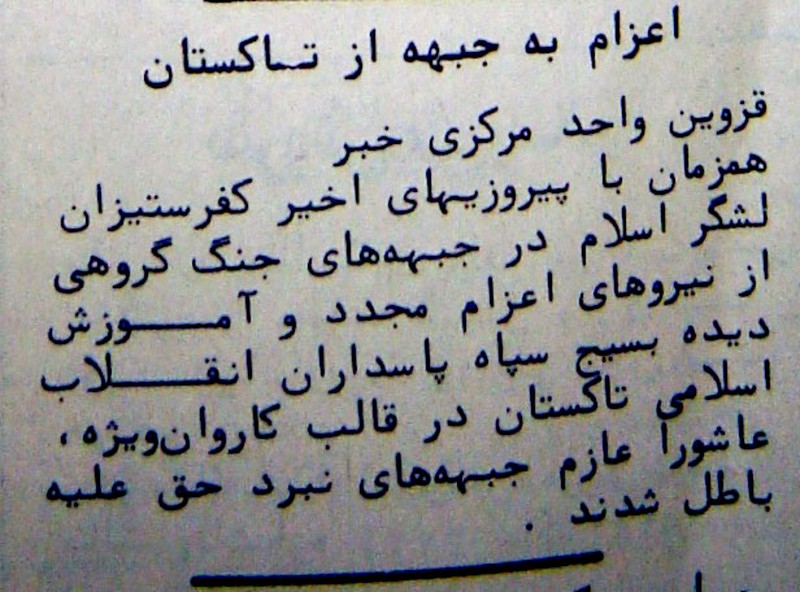 اعزام به جبهه از تاکستان
قزوین واحد مرکزی خبر
همزمان با پیروزیهای اخیر کفرستیزان
لشگر اسلام در جبهه‌های جنگ گروهی
از نیروهای اعزام مجدد و آموزش
دیده بسیج سپاه پاسداران انقلاب
اسلامی تاکستان در قالب کاروان‌ویژه،
عاشورا عازم جبهه‌های نبرد حق علیه
باطل شدند .